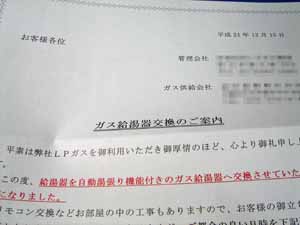 平成21年12月15日
お客様各位
管理会社
ガス供給会社
ガス給湯器交換のご案内
平素は弊社LPガスを御利用いただき御厚情のほど、心より御礼申し
この度、給湯器を自動湯張り機能付きのガス給湯器へ交換させていた
になりました。
リモコン交換などお部屋の中の工事もありますので、お客様の御立